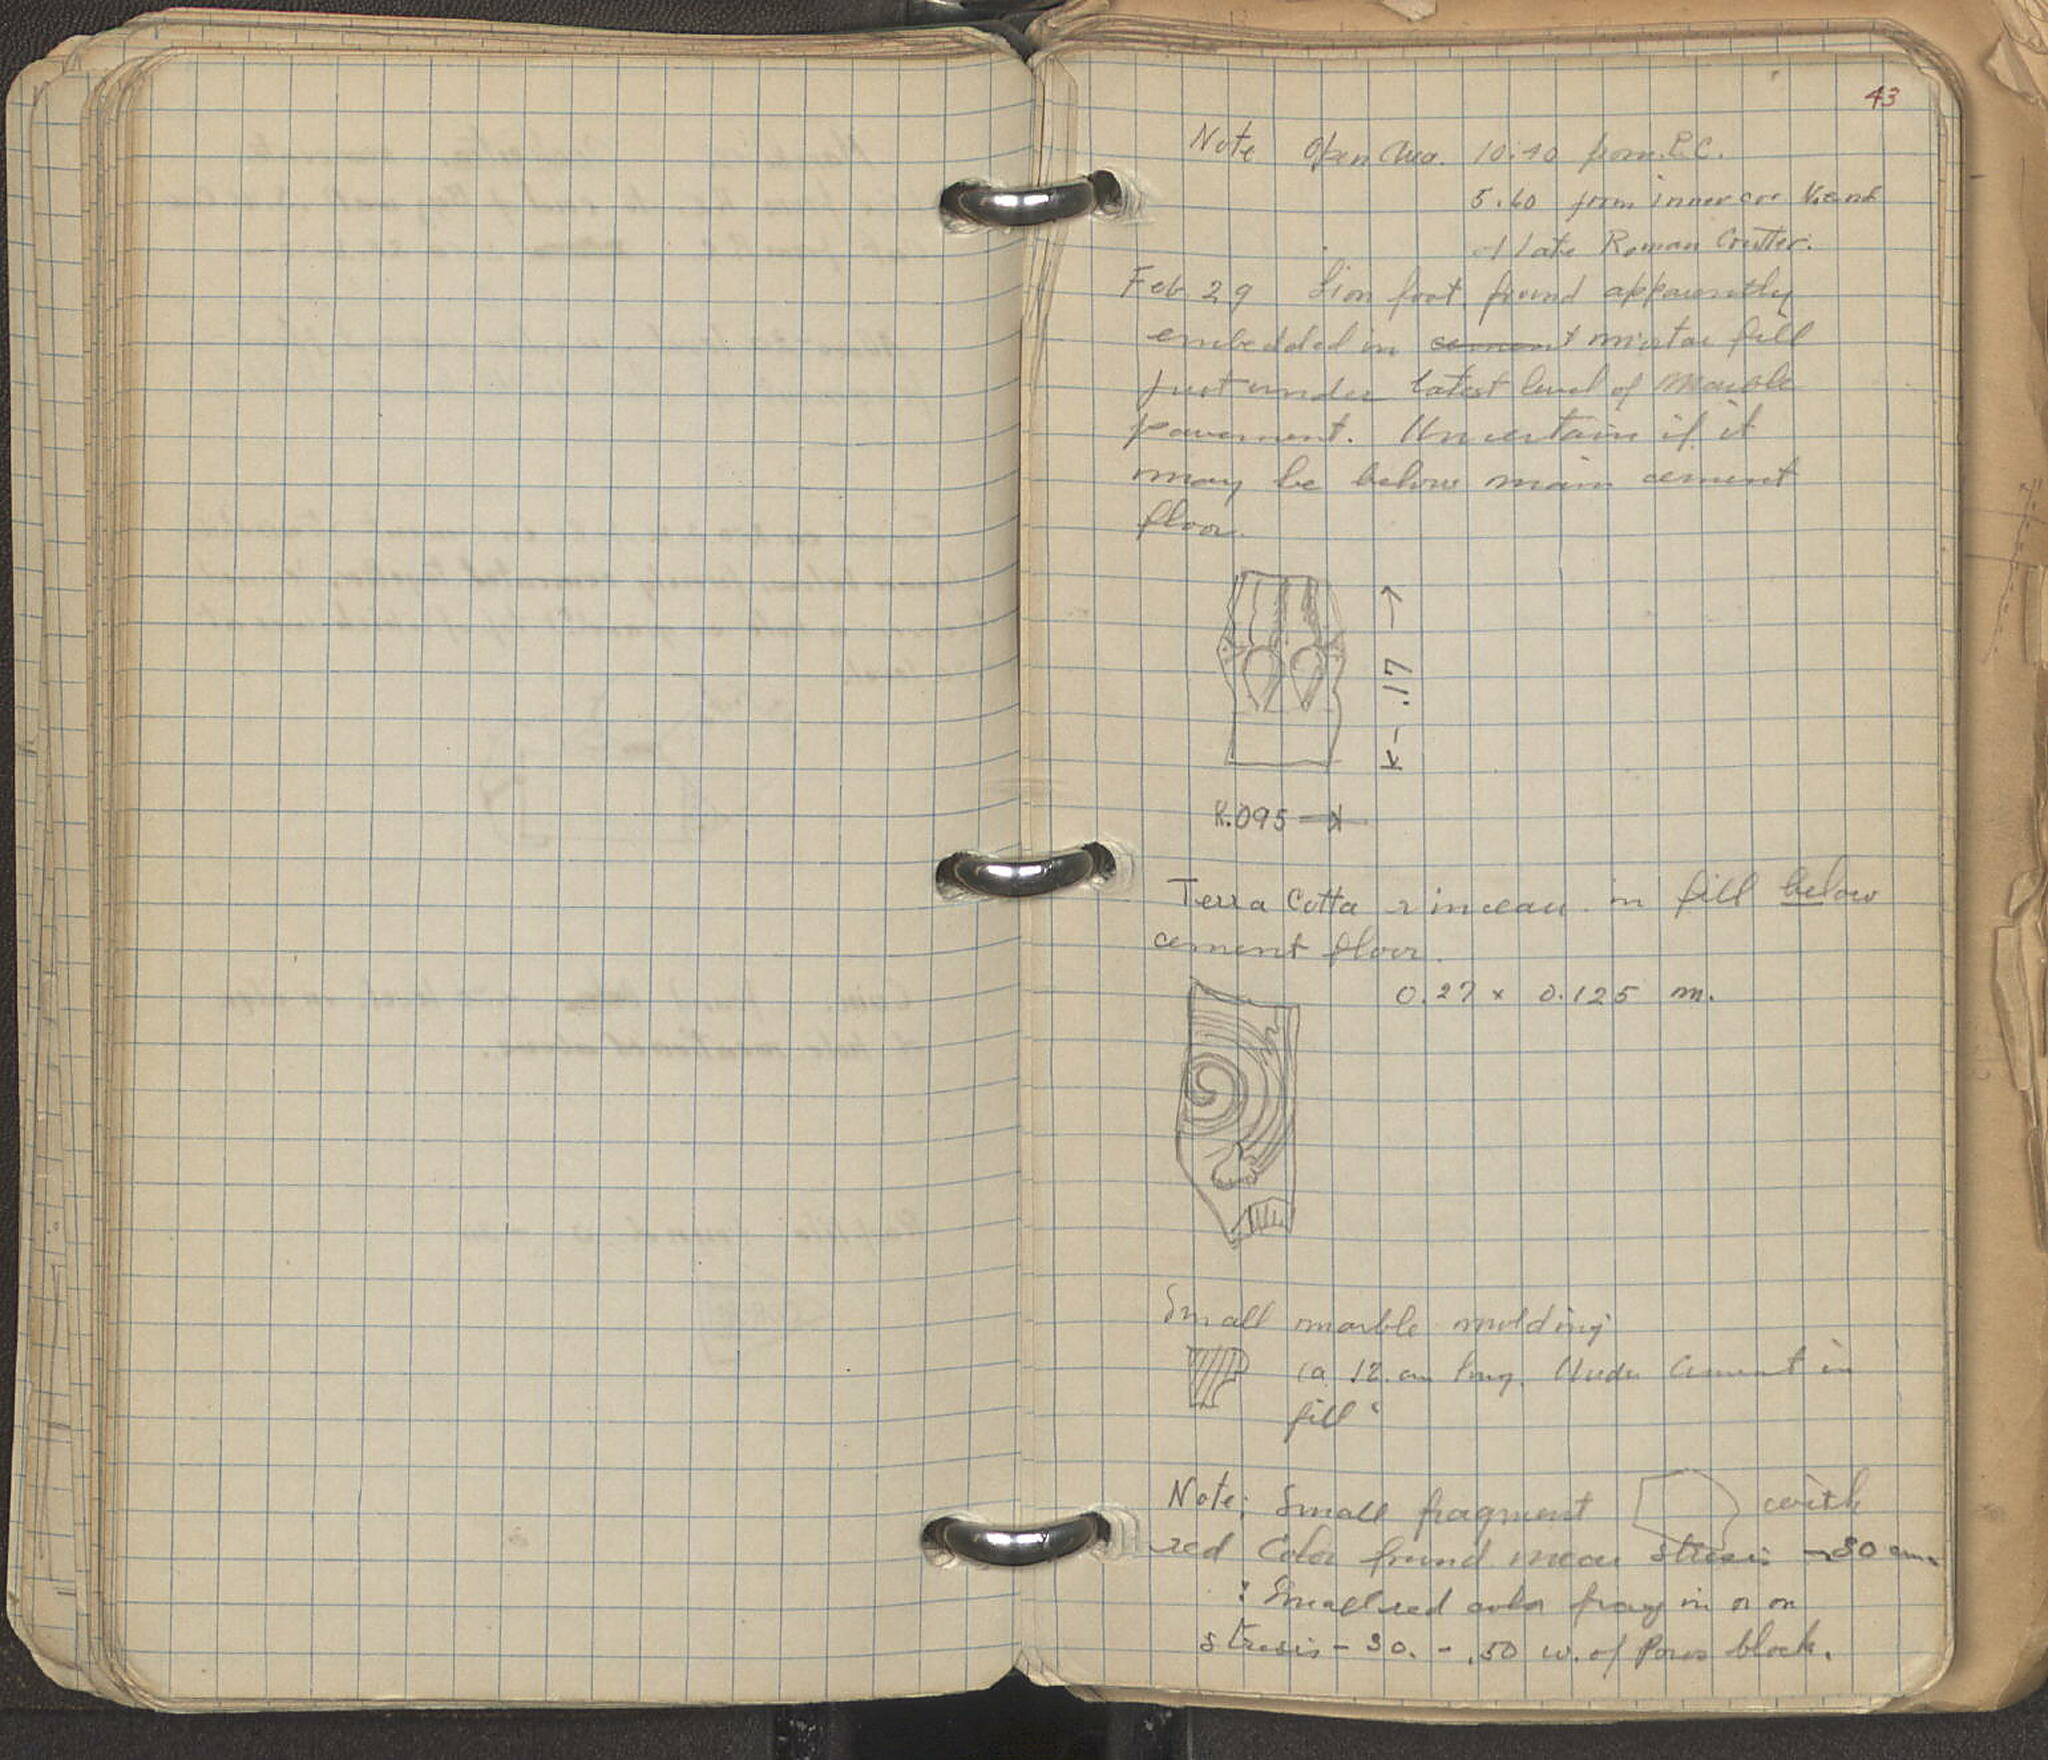 43
Note Open Area. 10.40 from P.C.
5.60 from inner cor W. end
of late Roman Gutter.
Feb 29 Lion foot found apparently
embedded in cement mortar fill
just under latest level of marble
pavement. Uncertain if it
may be below main cement
floor.
.17
.095
Terra Cotta rinceau in fill below
cement floor.
0.27 x 0.125 m.
Small marble molding
ca 12. cm long. Under Cement in
fill
Note: Small fragment with
red Color found near strosis - 30 cm.
: Small red color frag in or on
strosis - 30. - .50 w. of Poros block.